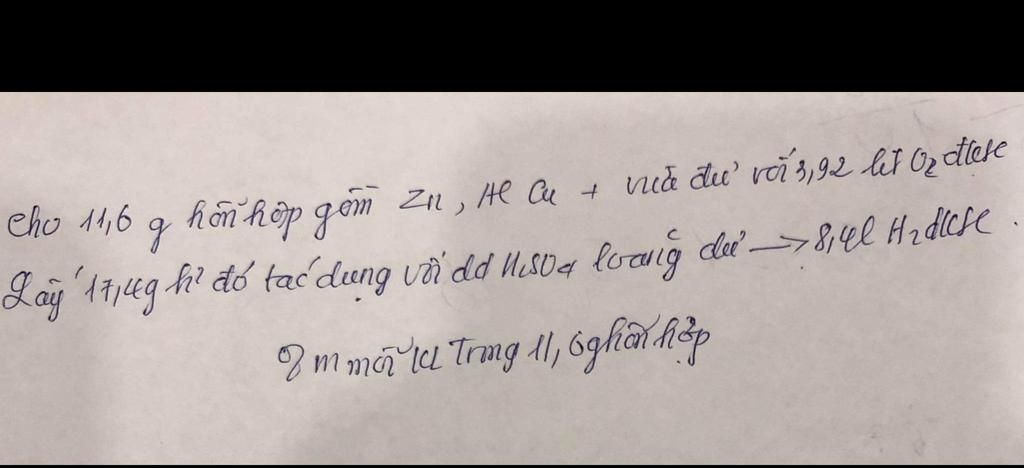 Cho 11,6 g hỗn hợp gồm Zn, Al Cu + vừa đủ với 3,92 lít O2 đktc
Lấy 17,4g h² đó tác dụng với dd H2SO4 loãng dư → 8,4l H2 đktc.
? m mỗi kl Trong 11,6g hỗn hợp